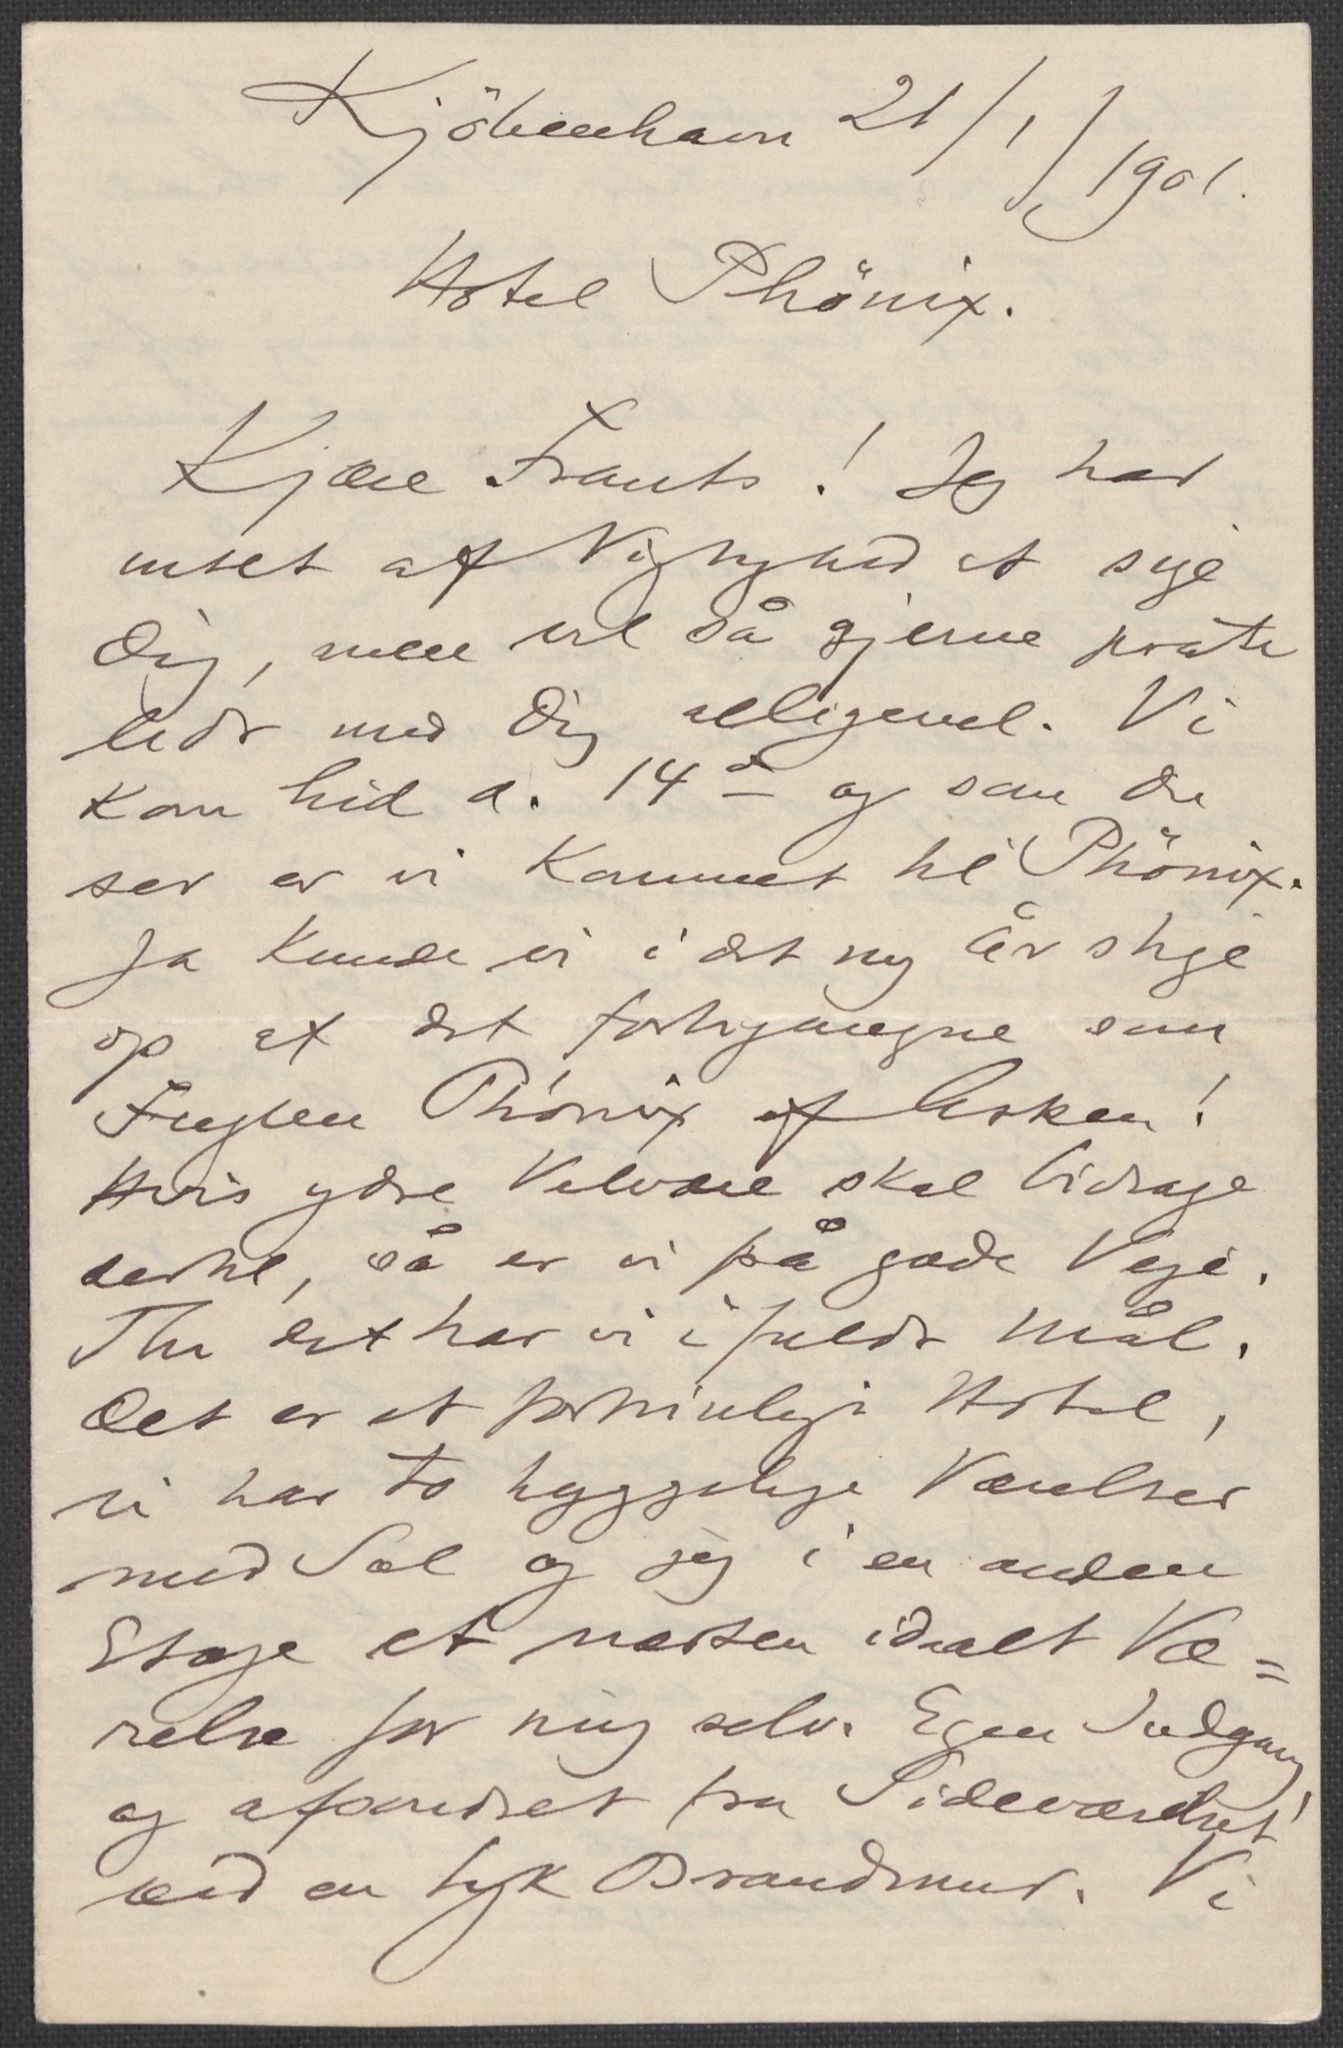 Kjöbenhavn 21/1/1901.
Hotel Phönix.
Kjære Frants! Jeg har
intet af Vigtighed at sige
Dig, men vil så gjerne prate
lidt med Dig alligevel. Vi
kom hid d. 14de og som Du
ser er vi kommet til Phönix.
Ja kunde vi i det ny År stige
op af det forhenværende som
Fuglen Phönix af Asken!
Hvis ydre Velvære skal bidrage
dertil, så er vi på gode Veje.
Thi det har vi i fuldt Mål.
Det er et fortrinligt Hotel,
vi har to hyggelige Værelser
med Sol og jeg i en anden
Etage et næsten idealt Væ=
relse for mig selv. Egen Indgang
og afsondret fra Sideværelset
ved en tyk Brandmur. Vi